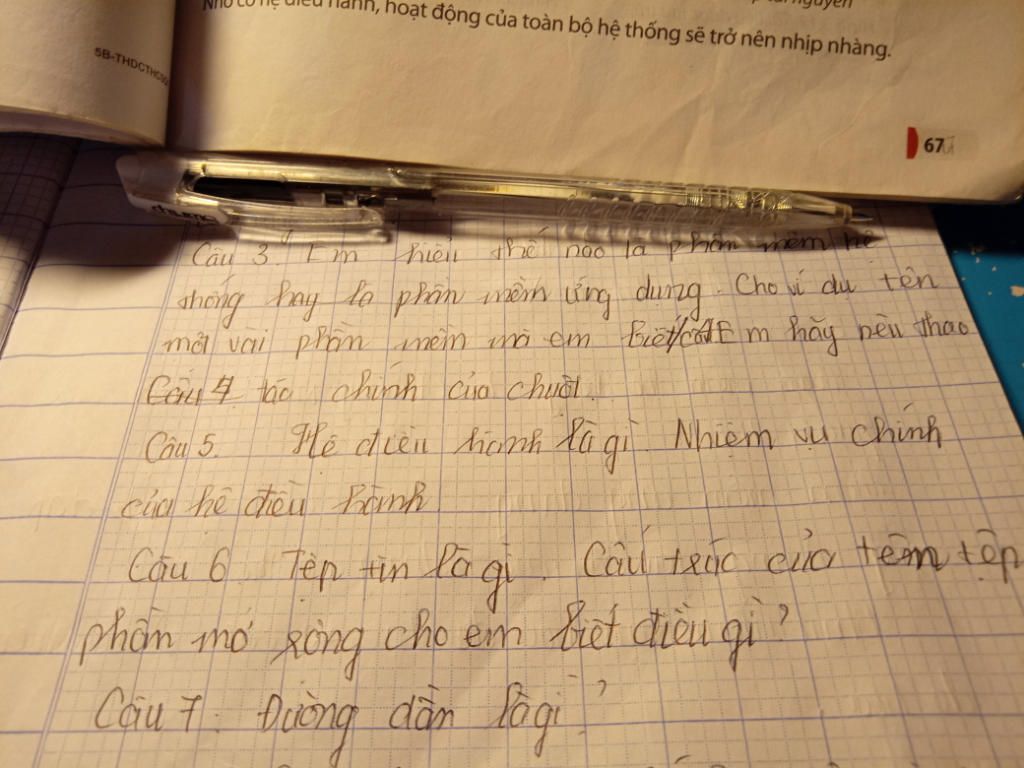 Nhờ có hệ điều hành, hoạt động của toàn bộ hệ thống sẽ trở nên nhịp nhàng.
5B-THDCTHCS
67
Câu 3. Em hiểu thế nào là phần mềm hệ
thống hay là phần mềm ứng dụng. Cho ví dụ tên
một vài phần mềm mà em biết Em hãy nêu thao
Câu 4 tác chính của chuột.
Câu 5. Hệ điều hành là gì. Nhiệm vụ chính
của hệ điều hành
Câu 6 Tệp tin là gì. Cấu trúc của têm tệp
phần mở rộng cho em biết điều gì?
Câu 7. Đường dẫn là gì?